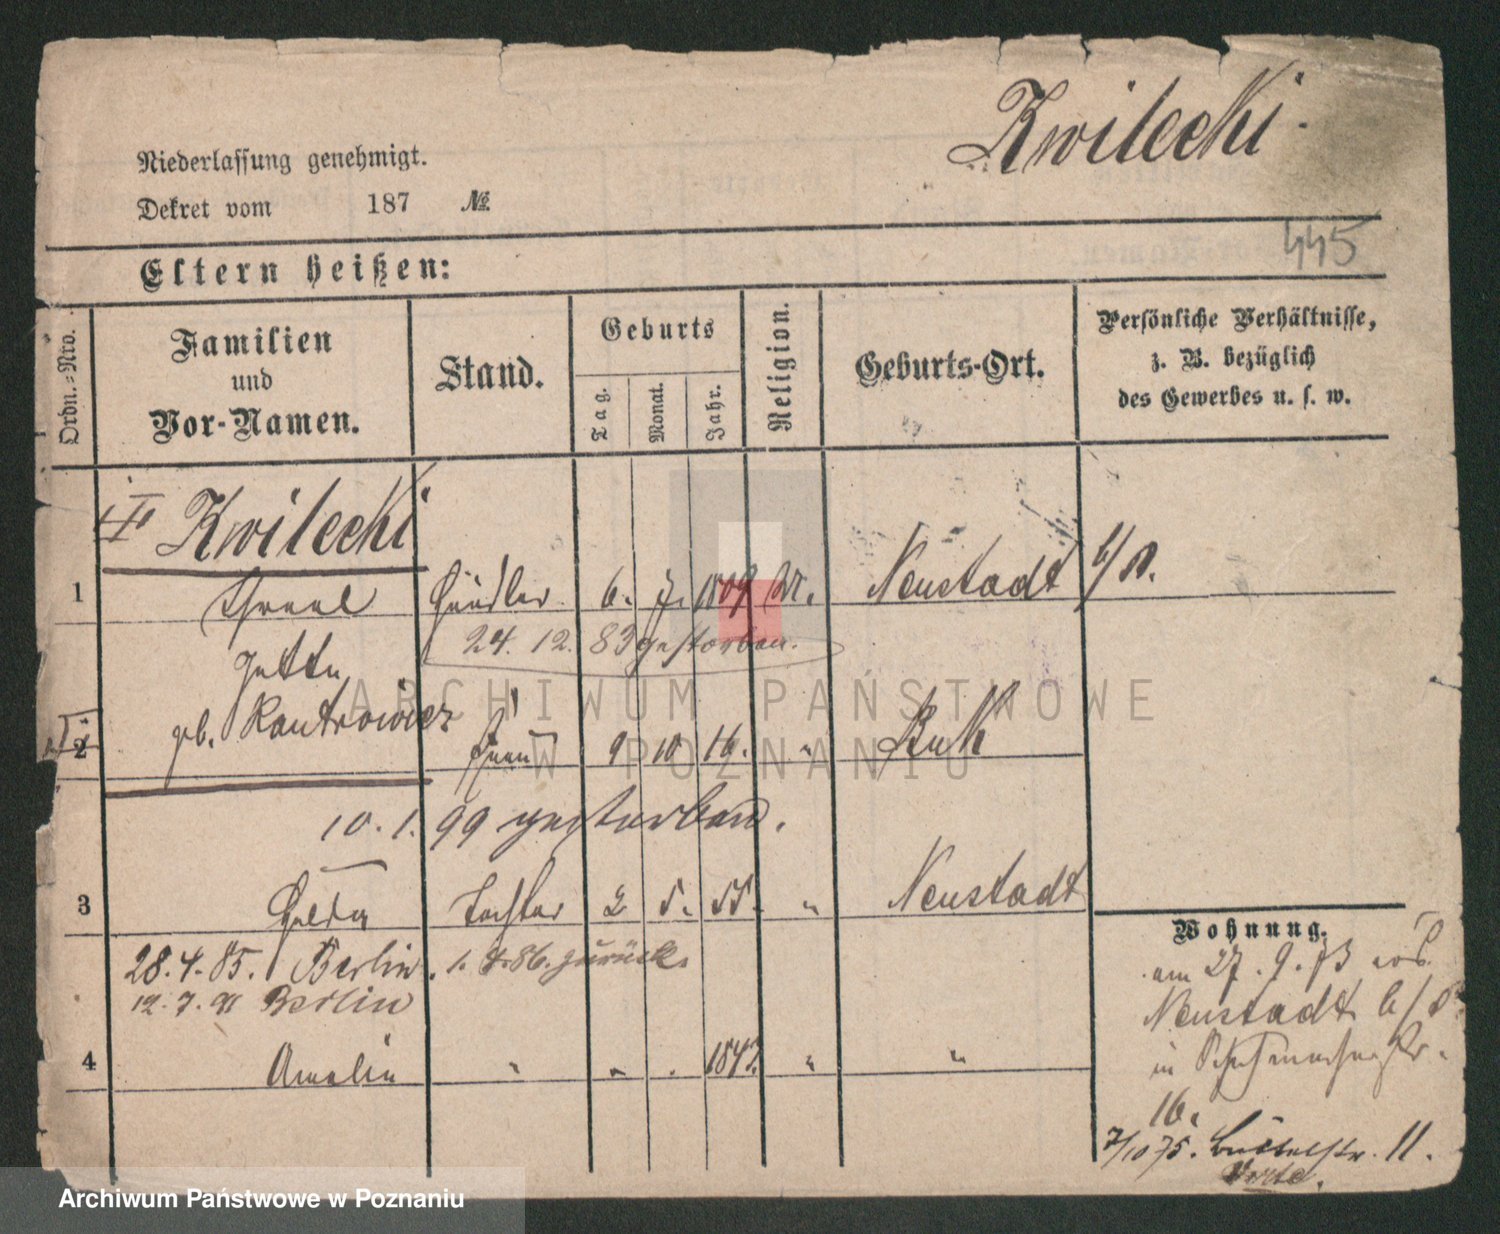 Kwilecki
Niederlassung genehmigt.
Dekret vom 187 №
445
Eltern heißen:
Ordn.-Nro.
Familien und Vor-Namen.
Stand.
Geburts
Tag.
Monat.
Jahr.
Religion.
Geburts-Ort.
Persönliche Verhältnisse,
z. B. bezüglich
des Gewerbes u. s. w.
Kwilecki
1 Israel Händler 6. 7. 1809 M. Neustadt
24. 12. 83 gestorben.
Jette
geb. Kantrowicz
2 Frau 9 10 19. " Buk
10. 1. 99 gestorben.
3 Hulda Tochter 2 5. 55. " Neustadt
28. 4. 85. Berlin. 1. 7. 86. zurück.
12. 7. 91 Berlin
4 Amalie " " " "
Wohnung.
am 27. 9. 73
Neustadt b/
in
16.
7/10 75. Büttelstr. 11.
Verte.
ARCHIWUM PAŃSTWOWE
W POZNANIU
Archiwum Państwowe w Poznaniu